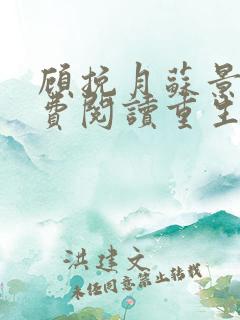 顾挽月蘇景
費閱讀重生
洪建文
未经同意禁止转载